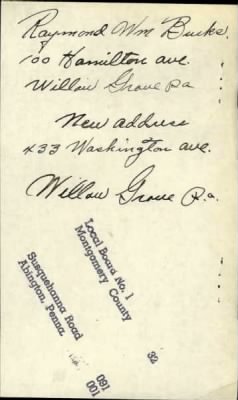 Raymond Wm Burks.
100 Hamilton ave.
Willow Grove pa
New address
433 Washington ave.
Willow Grove Pa.
Local Board No. 1
Montgomery County
32
091
001
Susquehanna Road
Abington, Penna.